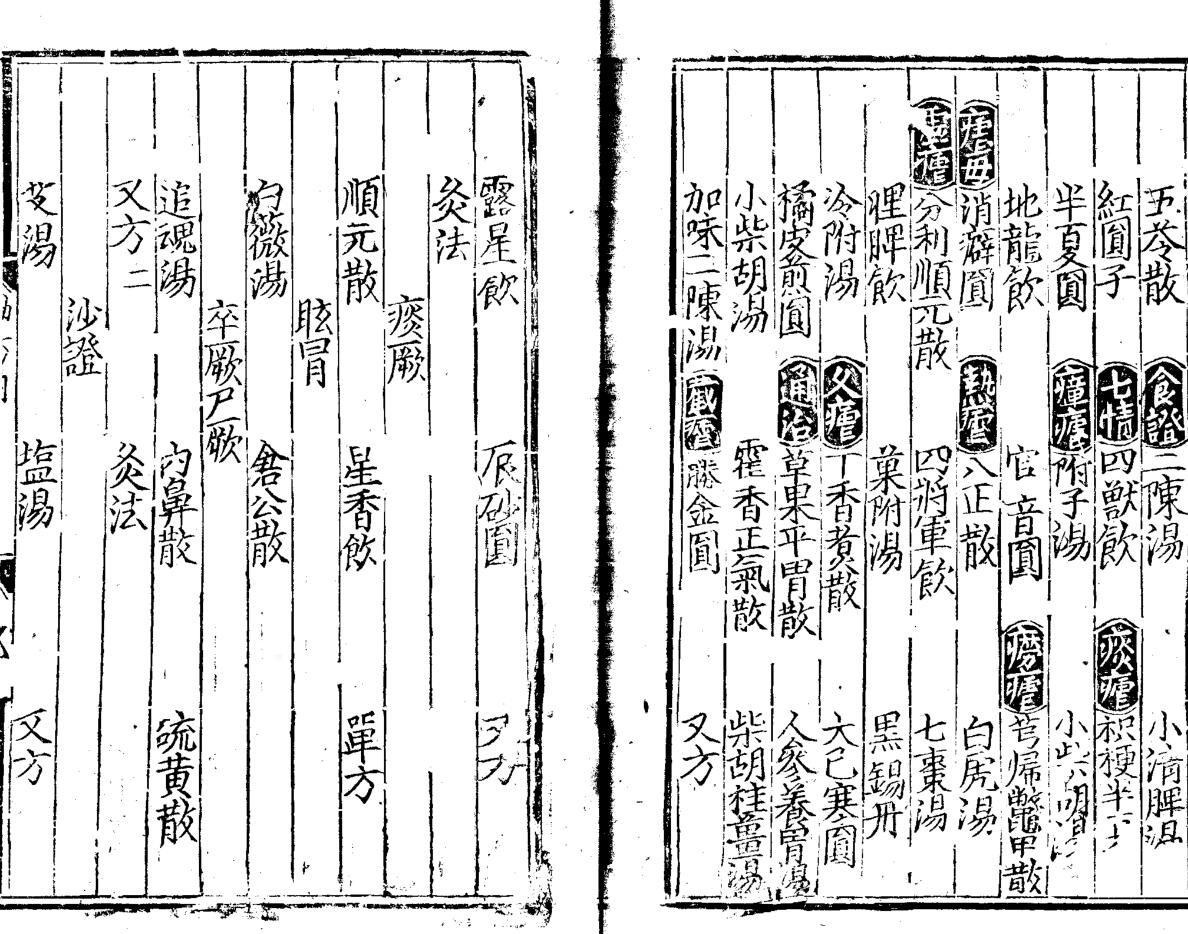 五苓散 食證 二陳湯 小清脾湯
紅圓子 七情 四獸飲 痰瘧 枳梗半夏
半夏圓 瘴瘧 附子湯 小柴胡湯
地龍飲 官音圓 癆瘧 芎歸鱉甲散
瘧母 消癖圓 熱瘧 八正散 白虎湯
虛瘧 分利順元散 四將軍飲 七棗湯
狸脾飲 菓附湯 黑錫丹
冷附湯 久瘧 丁香煮散 大已寒圓
橘皮煎圓 通治 草果平胃散 人參養胃湯
小柴胡湯 霍香正氣散 柴胡桂薑湯
加味二陳湯 截瘧 勝金圓 又方
露星飲 辰砂圓 又方
灸法
痰厥
順元散 星香飲 單方
眩冒
白薇湯 倉公散
卒厥尸厥
追魂湯 內鼻散 硫黃散
又方二 灸法
沙證
艾湯 塩湯 又方